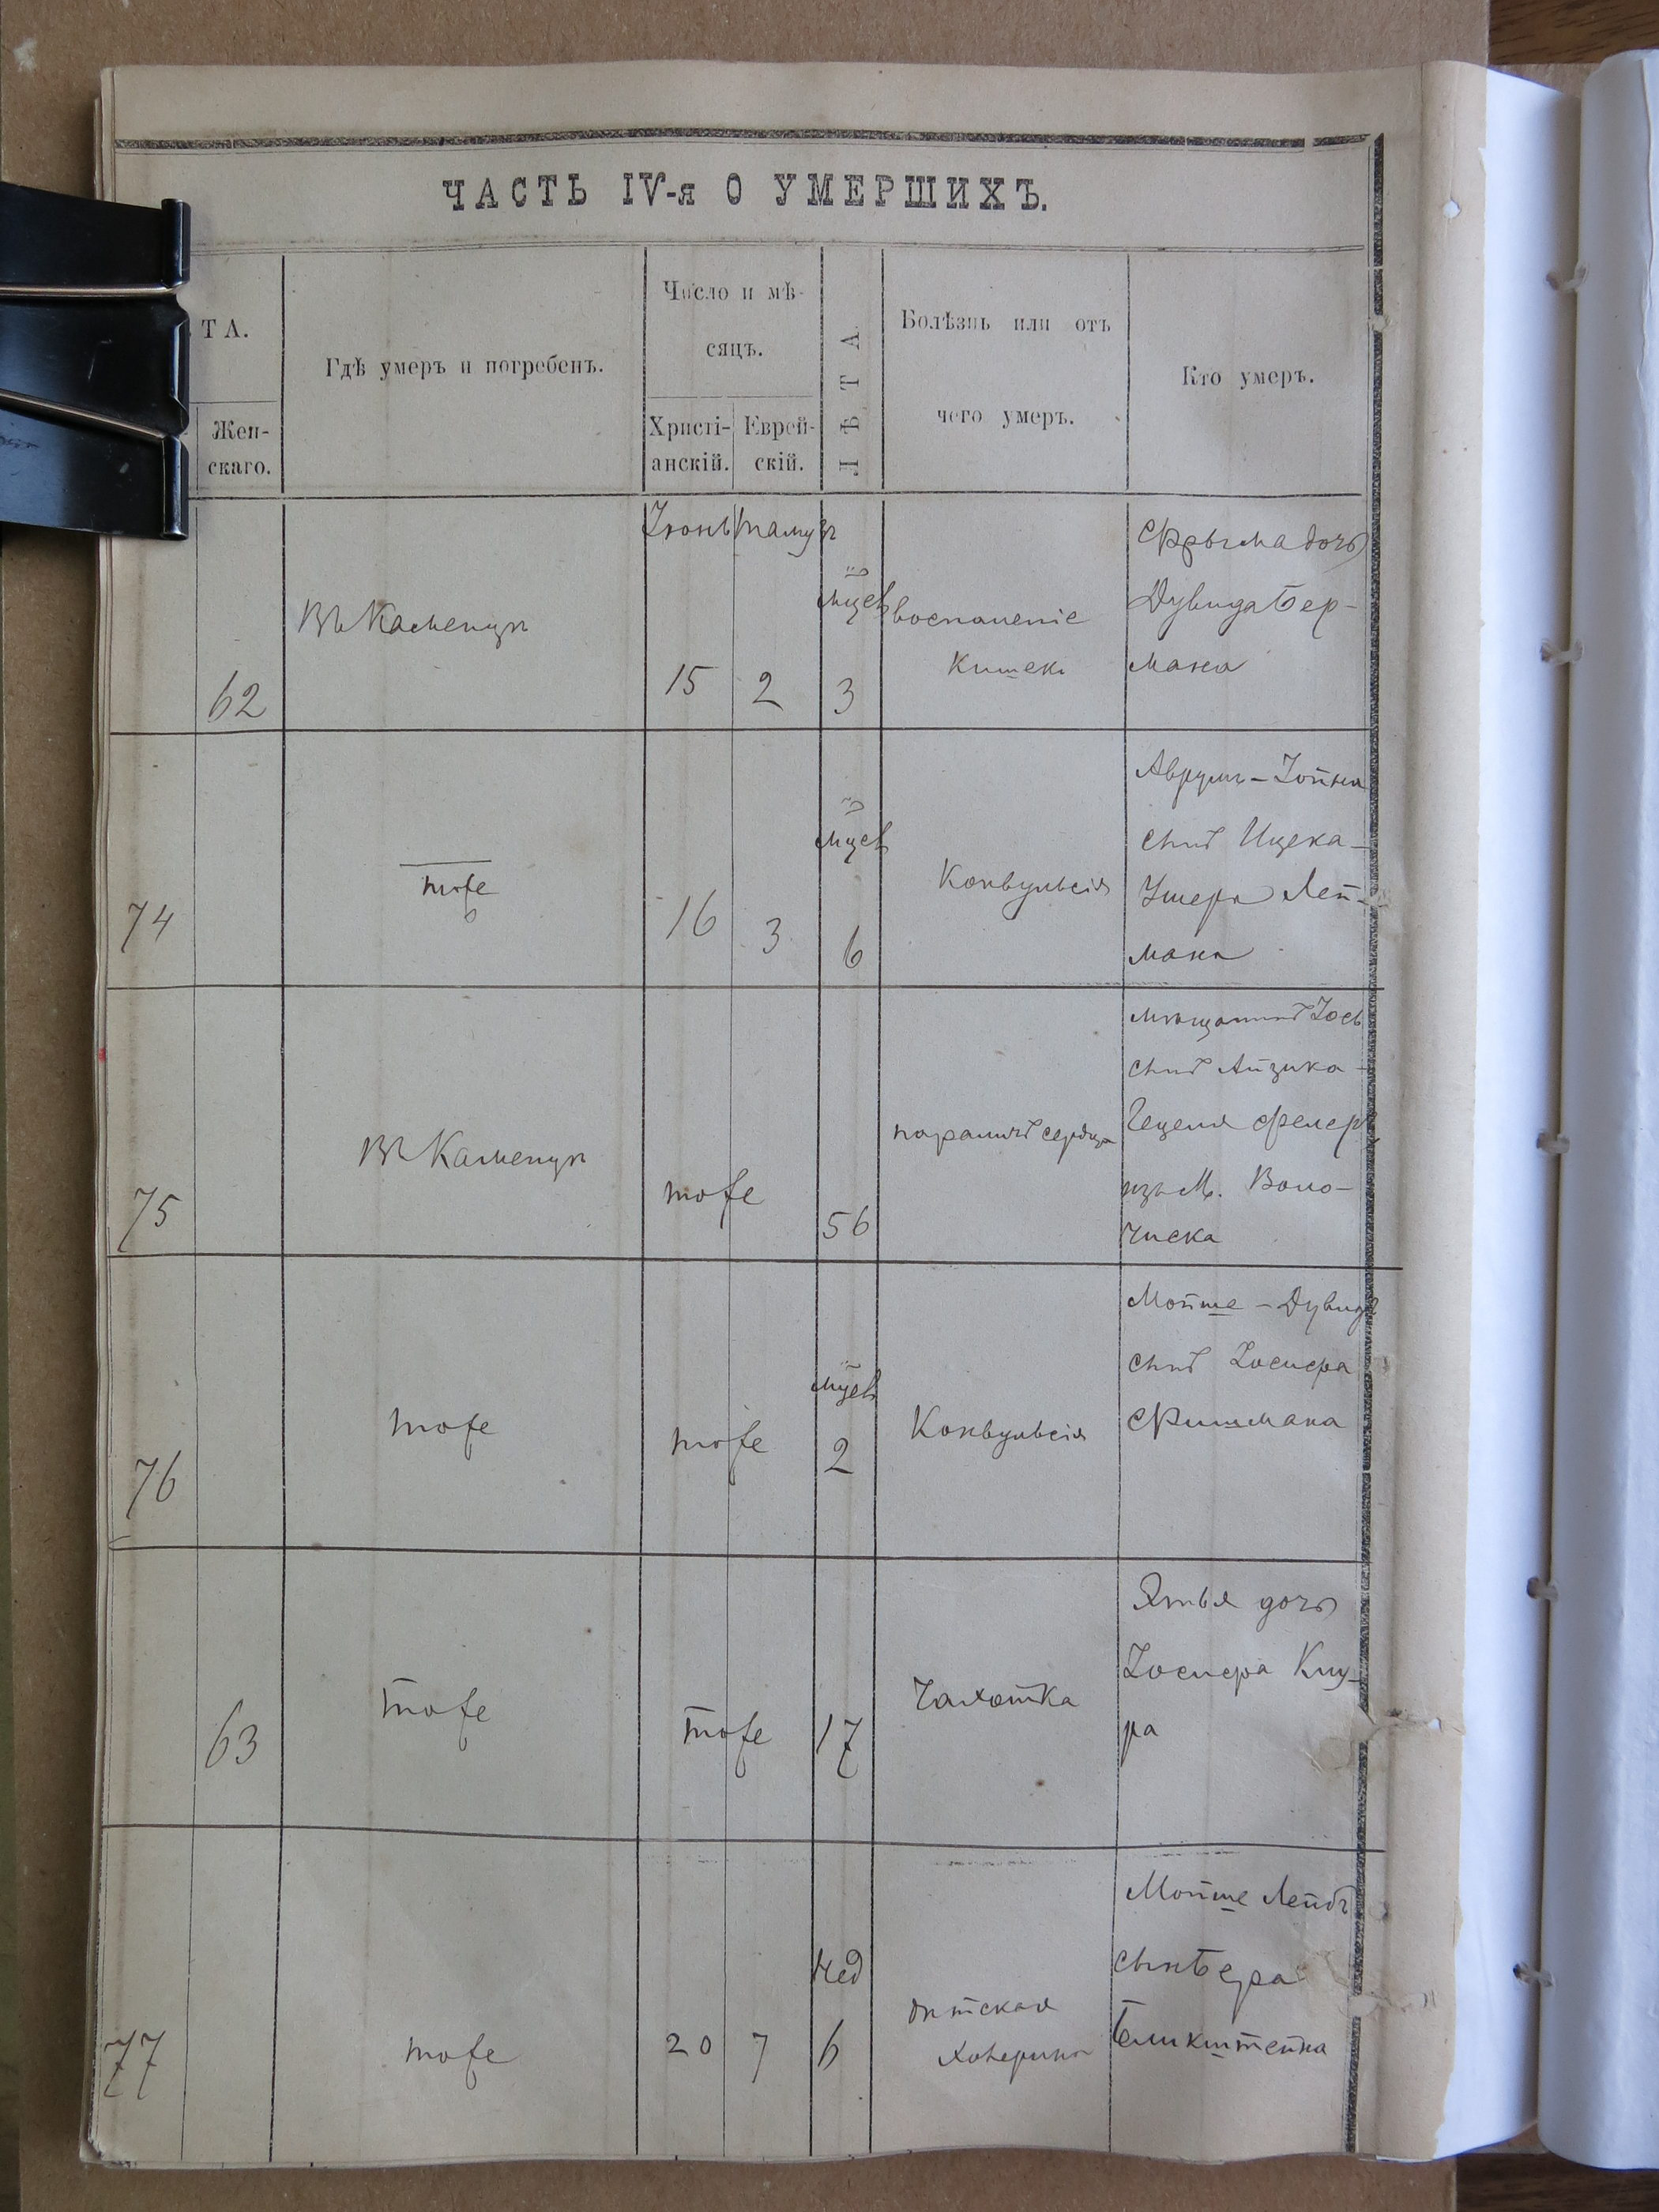 ЧАСТЬ IV-я О УМЕРШИХЪ.
ТА.
Жен-
скаго.
Гдѣ умеръ и погребенъ.
Число и мѣ-
сяцъ.
Христі-
анскій.
Еврей-
скій.
ЛѢТА.
Болѣзнь или отъ
чего умеръ.
Кто умеръ.
Іюнь тамуз
62
Въ Каменцѣ
15
2
мцев
3
воспаленіе
кишекъ
Фрыма дочь
Дувида Бер-
мана
74
тоже
16
3
мцев
6
Конвульсія
Аврумъ-Іойна
сынъ Ицека-
Ушера Лей-
мана
75
Въ Каменцѣ
тоже
56
параличъ сердца
мѣщанинъ Іось
сынъ Айзика-
Гецеля Фелер
изъ М. Воло-
чиска
76
тоже
тоже
мцев
2
Конвульсія
Мойше-Дувидъ
сынъ Іосифа
Фишмана
63
тоже
тоже
17
Чахотка
Этья дочь
Іосифа
ра
77
тоже
20
7
нед
6
дѣтская
холерина
Мойше Лейбъ
сынъ